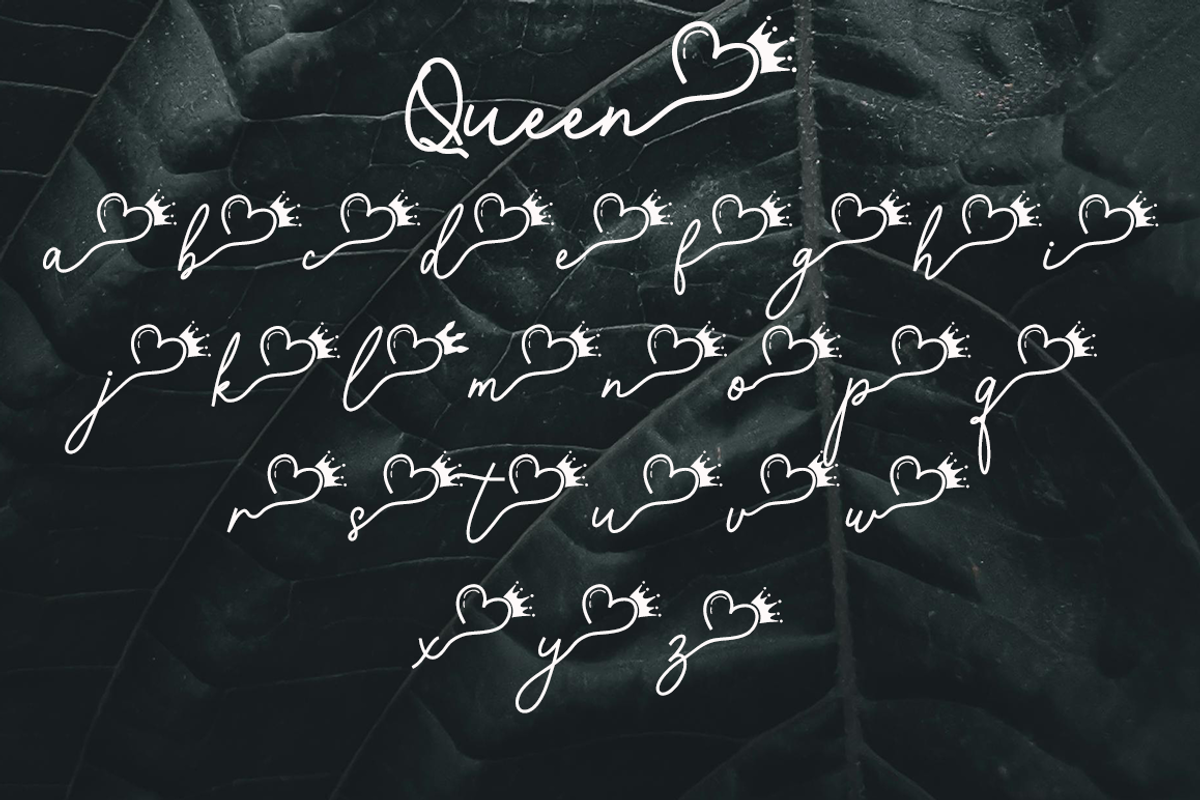 Queen
a b c d e f g h i
j k l m n o p q
r s t u v w
x y z